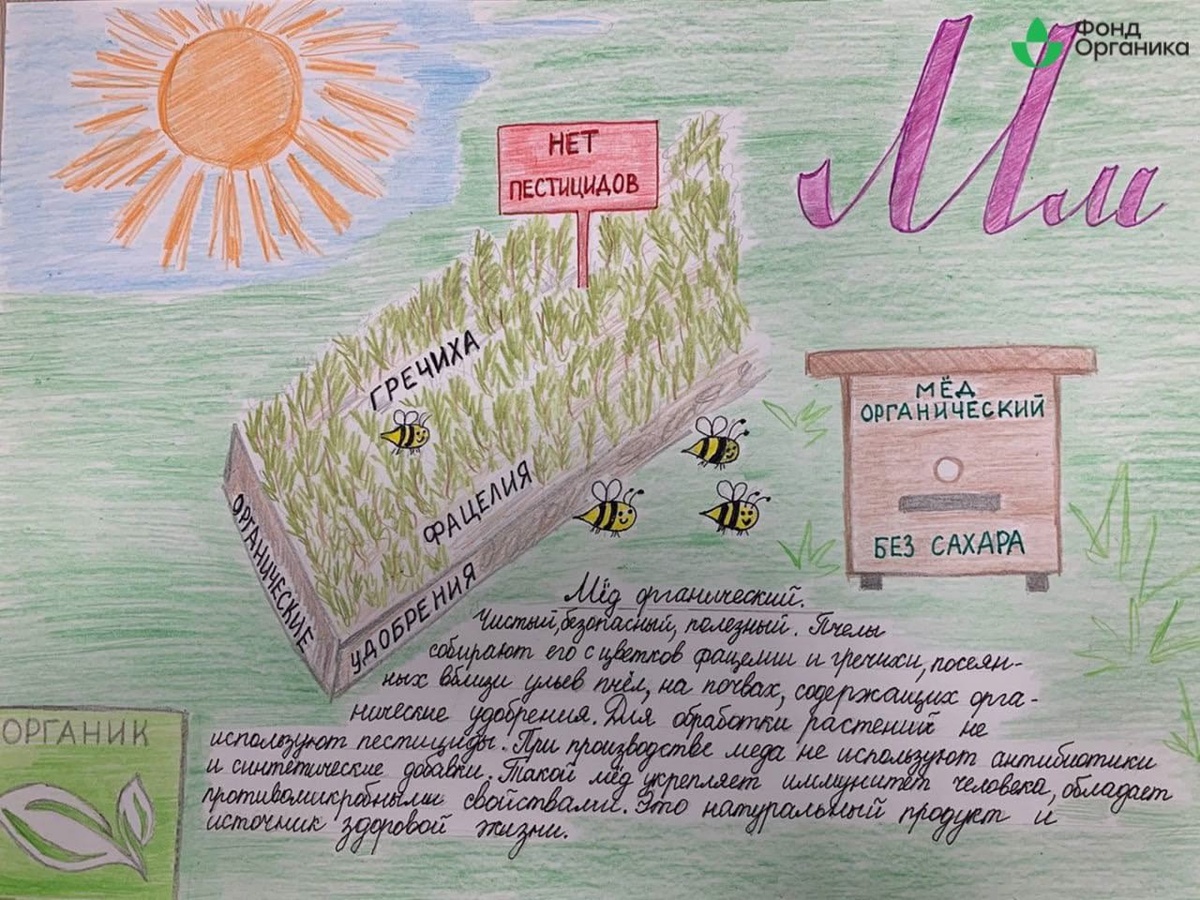 Фонд
Органика
Мм
НЕТ
ПЕСТИЦИДОВ
ГРЕЧИХА
ФАЦЕЛИЯ
ОРГАНИЧЕСКИЕ
УДОБРЕНИЯ
МЁД
ОРГАНИЧЕСКИЙ
БЕЗ САХАРА
Мёд органический.
Чистый, безопасный, полезный. Пчелы
собирают его с цветков фацелии и гречихи, посеян-
ных вблизи ульев пчёл, на почвах, содержащих орга-
нические удобрения. Для обработки растений не
используют пестициды. При производстве меда не используют антибиотики
и синтетические добавки. Такой мёд укрепляет иммунитет человека, обладает
противомикробными свойствами. Это натуральный продукт и
источник здоровой жизни.
ОРГАНИК